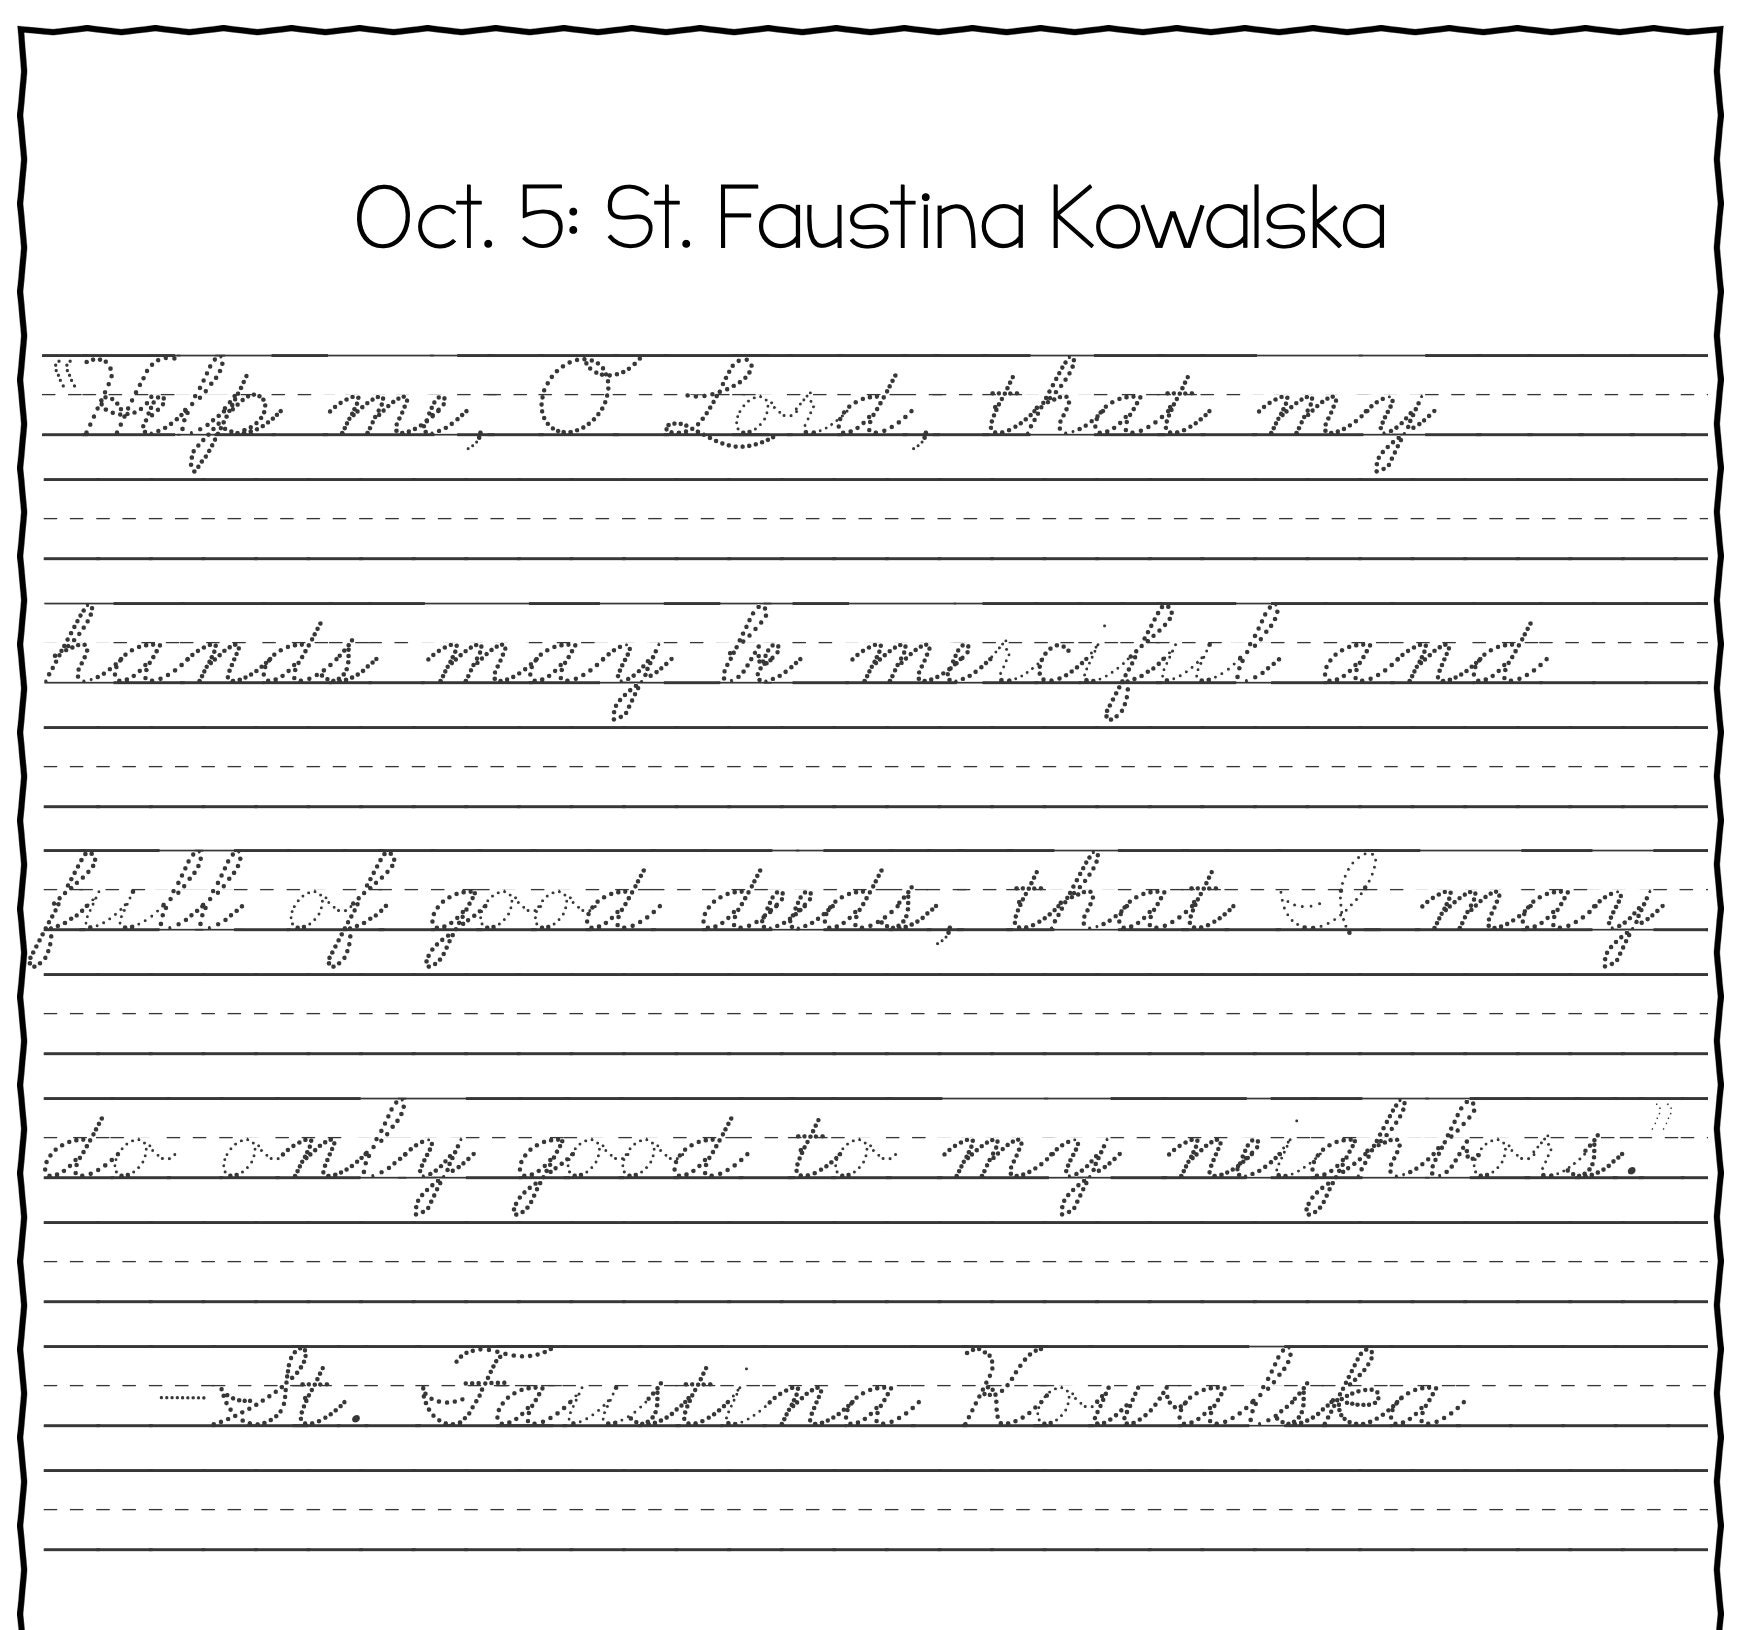 Oct. 5: St. Faustina Kowalska
"Help me, O Lord, that my
hands may be merciful and
full of good deeds, that I may
do only good to my neighbors."
-St. Faustina Kowalska